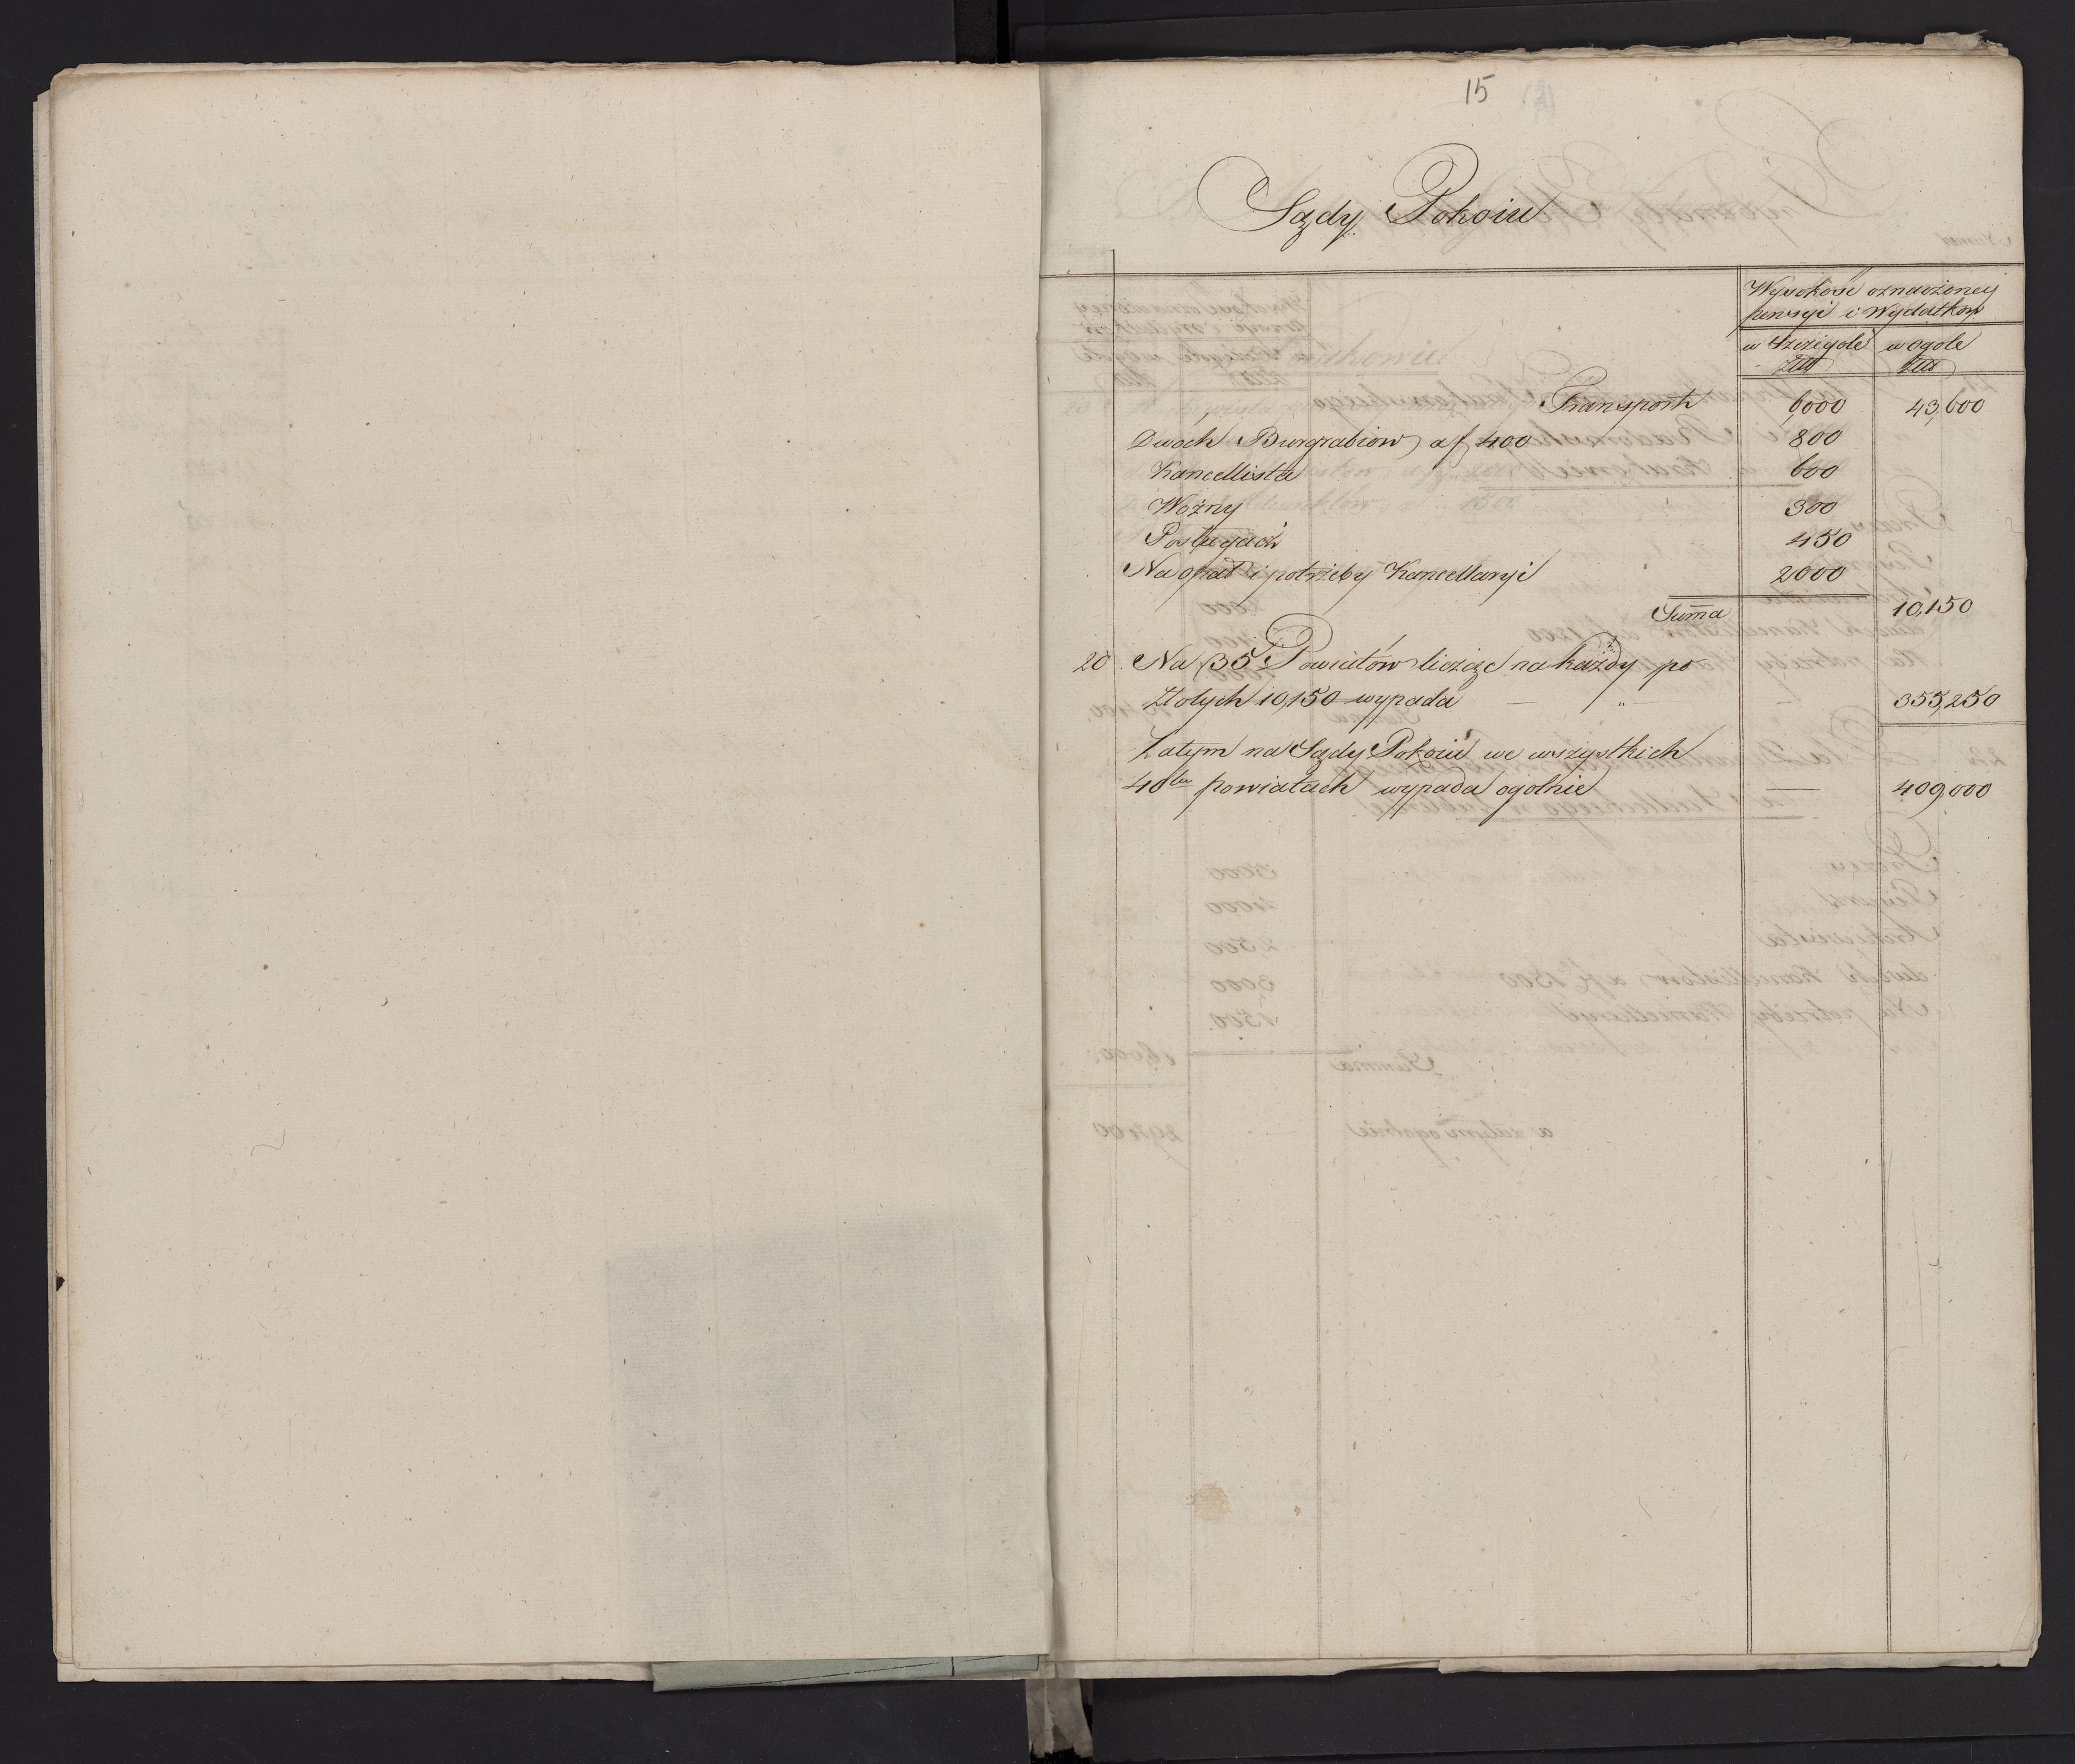 15
Sądy Pokoiu
Wysokość oznaczoney
pensyi i Wydatkow
w Szczegole w ogole
Złł Złł
Transport 6,000 43,600
Dwóch Burgrabiow a f 400 800
Kancellista 600
Woźny 300
Posługacz 450
Na opał i potrzeby Kancellaryi 2000
Suma 10,150
20 Na 35 Powiatów licząc na każdy po
Złotych 10,150 wypada — " — 355,250
Zatym na Sądy Pokoiu we wszystkich
40tu powiatach wypada ogolnie — 409,000